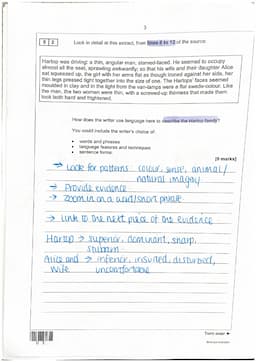 3
0 2
Look in detail at this extract, from lines 8 to 13 of the source:
Hartop was driving: a thin, angular man, starved-faced. He seemed to occupy
almost all the seat, sprawling awkwardly, so that his wife and their daughter Alice
sat squeezed up, the girl with her arms flat as though ironed against her sides, her
thin legs pressed tight together into the size of one. The Hartops' faces seemed
moulded in clay and in the light from the van-lamps were a flat swede-colour. Like
the man, the two women were thin, with a screwed-up thinness that made them
look both hard and frightened.
How does the writer use language here to describe the Hartop family?
You could include the writer's choice of:
• words and phrases
• language features and techniques
• sentence forms.
[8 marks]
→ Look for patterns colour, sense, animal/
natural imagery
→ Provide evidence
→ Zoom in on a word/short phrase
→ Link to the next piece of the evidence
Hartop → superior, dominant, sharp,
stubborn
Alice and → inferior, insured, disturbed,
wife uncomfortable
Turn over ►